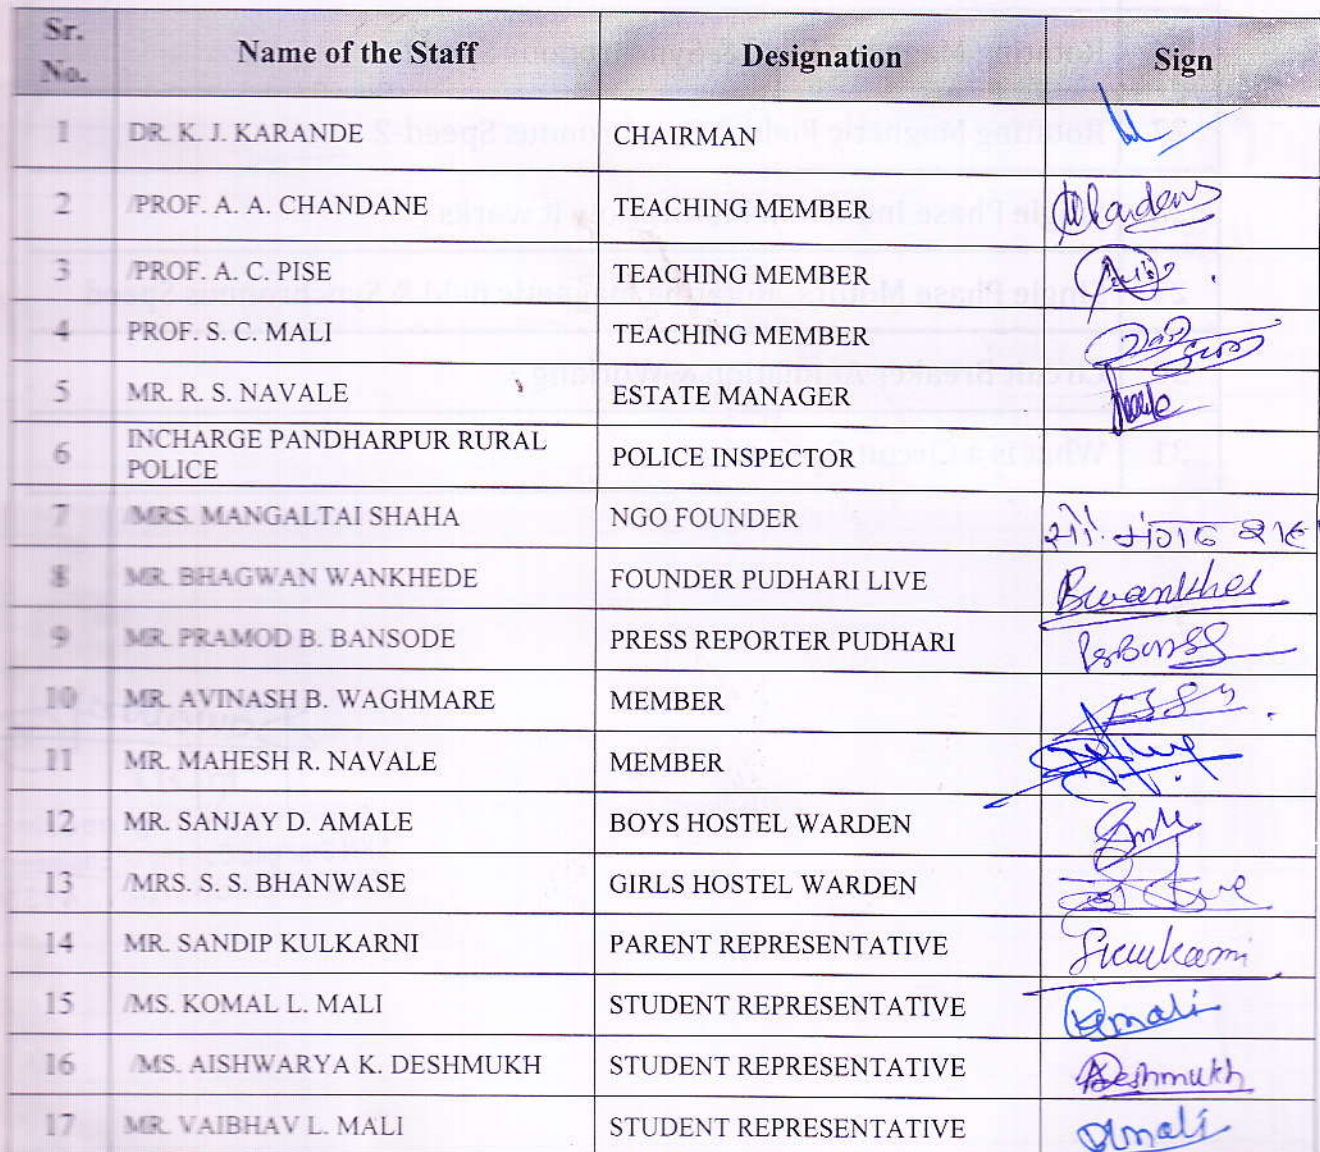 Sr. No. Name of the Staff Designation Sign
1 DR. K. J. KARANDE CHAIRMAN
2 /PROF. A. A. CHANDANE TEACHING MEMBER
3 /PROF. A. C. PISE TEACHING MEMBER
4 PROF. S. C. MALI TEACHING MEMBER
5 MR. R. S. NAVALE ESTATE MANAGER
6 INCHARGE PANDHARPUR RURAL
POLICE POLICE INSPECTOR
7 /MRS. MANGALTAI SHAHA NGO FOUNDER
8 MR. BHAGWAN WANKHEDE FOUNDER PUDHARI LIVE
9 MR. PRAMOD B. BANSODE PRESS REPORTER PUDHARI
10 MR. AVINASH B. WAGHMARE MEMBER
11 MR. MAHESH R. NAVALE MEMBER
12 MR. SANJAY D. AMALE BOYS HOSTEL WARDEN
13 /MRS. S. S. BHANWASE GIRLS HOSTEL WARDEN
14 MR. SANDIP KULKARNI PARENT REPRESENTATIVE
15 /MS. KOMAL L. MALI STUDENT REPRESENTATIVE
16 /MS. AISHWARYA K. DESHMUKH STUDENT REPRESENTATIVE Deshmukh
17 MR. VAIBHAV L. MALI STUDENT REPRESENTATIVE